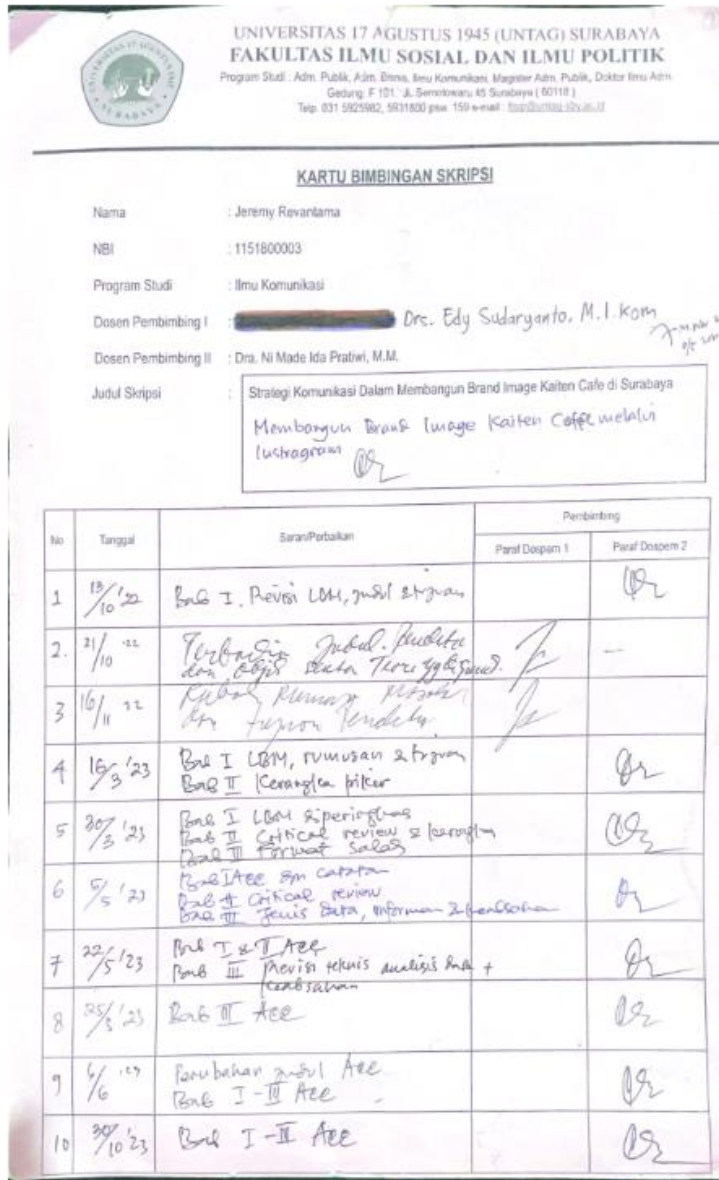 UNIVERSITAS 17 AGUSTUS 1945 (UNTAG) SURABAYA
FAKULTAS ILMU SOSIAL DAN ILMU POLITIK
Program Studi : Adm. Publik, Adm. Bisnis, Ilmu Komunikasi, Magister Adm. Publik, Doktor Ilmu Adm.
Gedung F 101. Jl. Semolowaru 45 Surabaya ( 60118 )
Telp. 031 5925982, 5931800 psw. 159 e-mail : fisip@untag-sby.ac.id
KARTU BIMBINGAN SKRIPSI
Nama : Jeremy Revantama
NBI : 1151800003
Program Studi : Ilmu Komunikasi
Dosen Pembimbing I : Drs. Edy Sudaryanto, M.I.Kom
Dosen Pembimbing II : Dra. Ni Made Ida Pratiwi, M.M.
Judul Skripsi : Strategi Komunikasi Dalam Membangun Brand Image Kaiten Cafe di Surabaya
Membangun Brand Image Kaiten Coffe melalui
Instragram
No Tanggal Saran/Perbaikan Pembimbing
Paraf Dospem 1 Paraf Dospem 2
1 13/10 '22 Bab I. Revisi LBM, judul & tujuan
2. 21/10 '22 Judul.
dan Teori yg
3 16/11 22
4 16/3 '23 Bab I LBM, rumusan & tujuan
Bab II Kerangka pikir
5 30/3 '23 Bab I LBM diperingkas
Bab II Critical review & kerangka
Bab III Format salah
6 5/5 '23 Bab I Acc dgn catatan
Bab II Critical review
Bab III Jenis data, informan & keabsahan
7 22/5 '23 Bab I & II Acc
Bab III Revisi teknis analisis data +
keabsahan
8 25/5 '23 Bab III Acc
9 6/6 '23 Perubahan judul Acc
Bab I - III Acc
10 30/10 '23 Bab I - III Acc